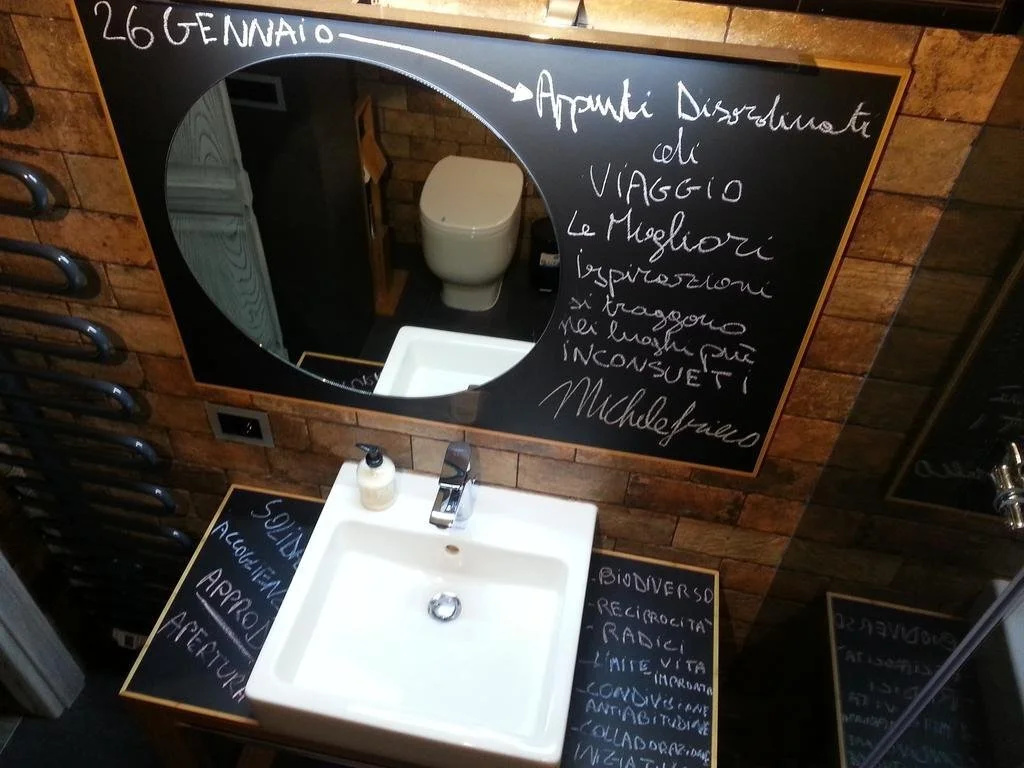 26 GENNAIO
Appunti Disordinati
di
VIAGGIO
Le Migliori
ispirazioni
si traggono
nei luoghi più
INCONSUETI
Michelefrisco
SOLIDA
ACCOGLIENZ
APPRO
APERTURA
- BIODIVERSO
- RECIPROCITA'
- RADICI
- L'IMITE VITA
- IMPRONTA
- CONDIVISIONE
ANTIABITUDINE
- COLLABORAZIONE
INIZIATI